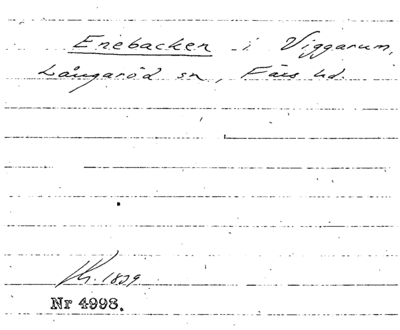 Enebacken i Viggarum,
Långaröd sn, Färs hd.
1829
Nr 4998.